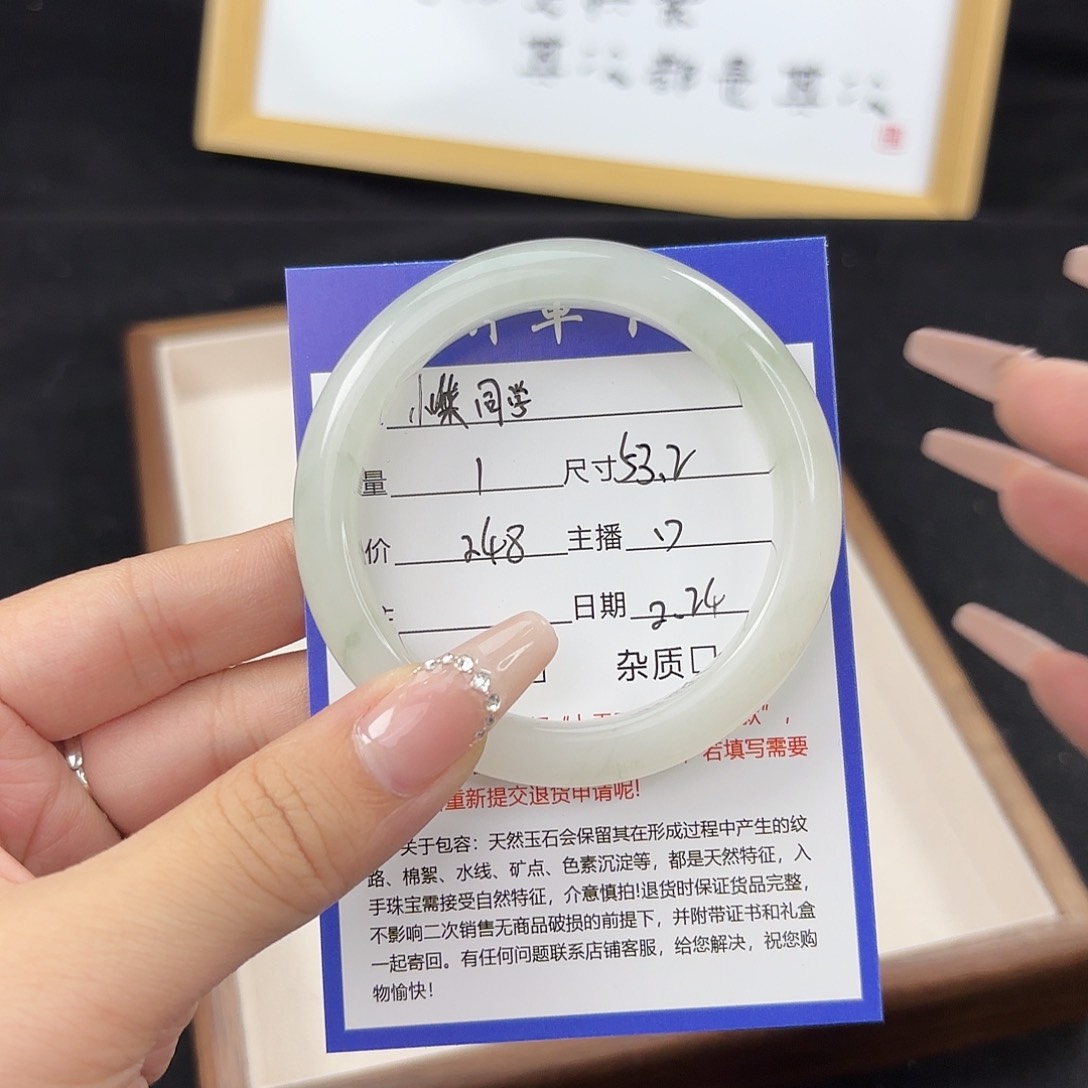 都是
单
小柴同学
量 1 尺寸 53.2
价 248 主播 17
日期 2.24
杂质□
若填写需要
重新提交退货申请呢!
关于包容：天然玉石会保留其在形成过程中产生的纹
路、棉絮、水线、矿点、色素沉淀等，都是天然特征，入
手珠宝需接受自然特征，介意慎拍!退货时保证货品完整，
不影响二次销售无商品破损的前提下，并附带证书和礼盒
一起寄回。有任何问题联系店铺客服，给您解决，祝您购
物愉快!